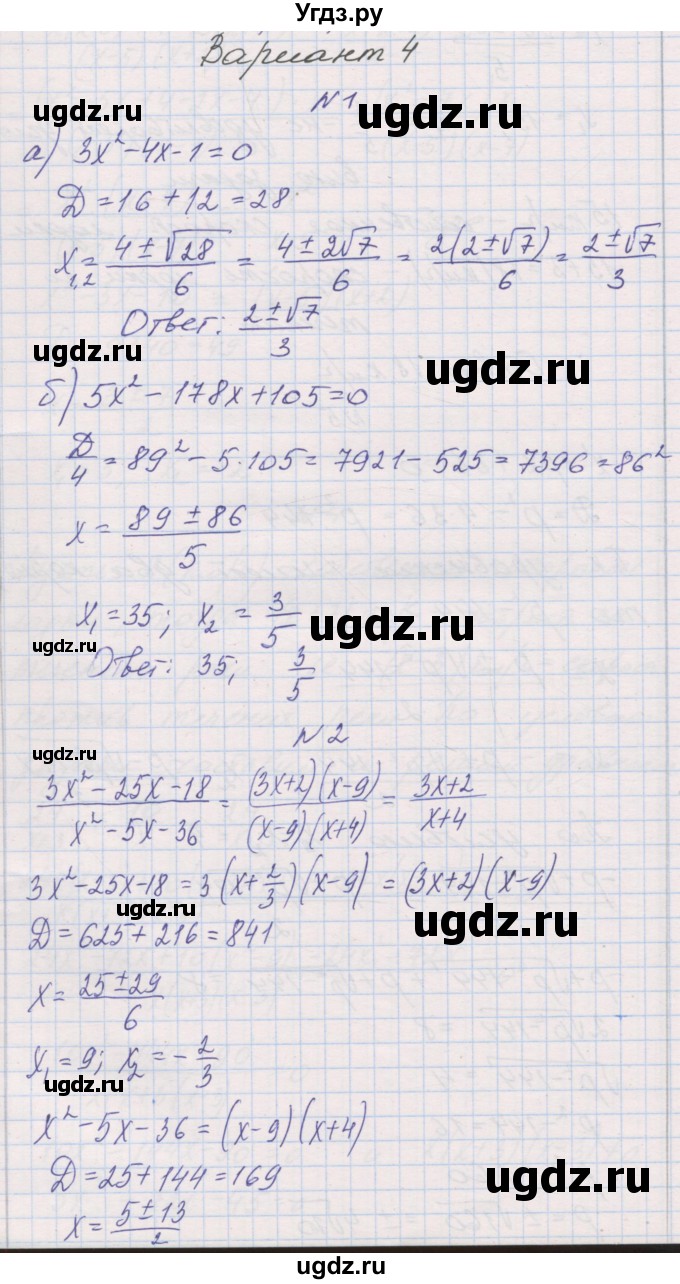 Угдз.ру
Вариант 4
ugdz.ru
N1
ugdz.ru
а) 3x² - 4x - 1 = 0
Д = 16 + 12 = 28
x₁,₂ = (4 ± √28)/6 = (4 ± 2√7)/6 = (2(2 ± √7))/6 = (2 ± √7)/3
Ответ: (2 ± √7)/3
ugdz.ru
ugdz.ru
б) 5x² - 178x + 105 = 0
Д/4 = 89² - 5·105 = 7921 - 525 = 7396 = 86²
x = (89 ± 86)/5
x₁ = 35; x₂ = 3/5
ugdz.ru
ugdz.ru
Ответ: 35; 3/5
N2
(3x² - 25x - 18)/(x² - 5x - 36) = ((3x+2)(x-9))/((x-9)(x+4)) = (3x+2)/(x+4)
3x² - 25x - 18 = 3(x + 2/3)(x - 9) = (3x+2)(x-9)
ugdz.ru
Д = 625 + 216 = 841
ugdz.ru
x = (25 ± 29)/6
x₁ = 9; x₂ = -2/3
ugdz.ru
x² - 5x - 36 = (x-9)(x+4)
Д = 25 + 144 = 169
ugdz.ru
x = (5 ± 13)/2
ugdz.ru
ugdz.ru